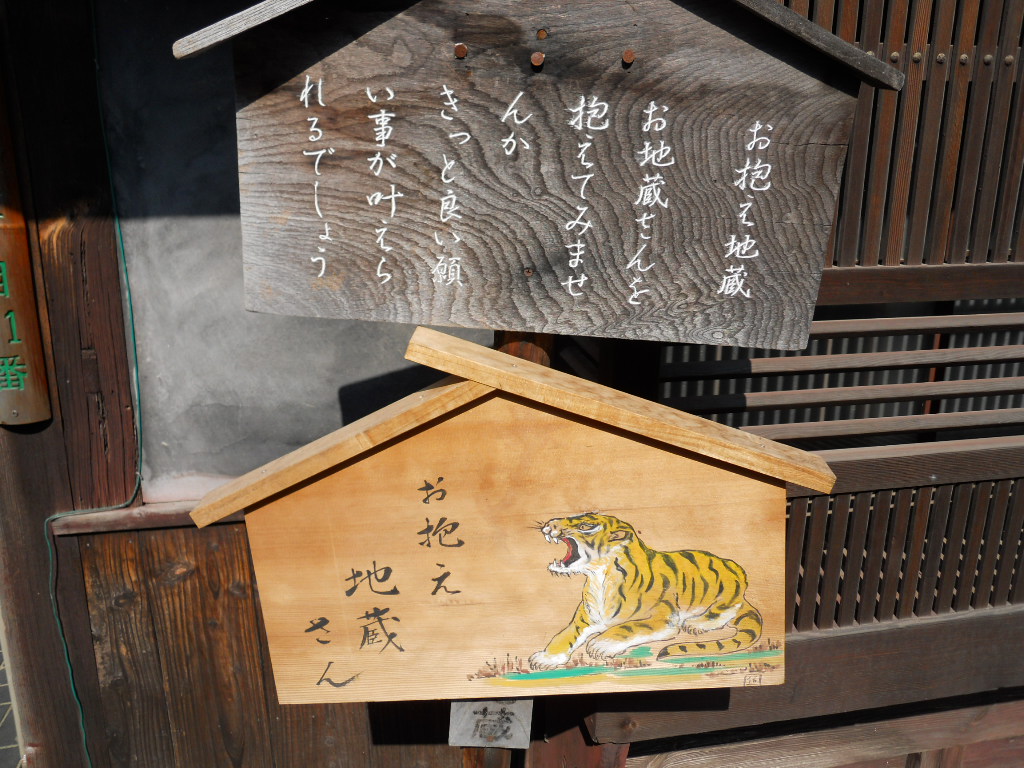 お抱え地蔵
お地蔵さんを
抱えてみませ
んか
きっと良い願
い事が叶えら
れるでしょう
お抱え
地蔵
さん
蔵
1番